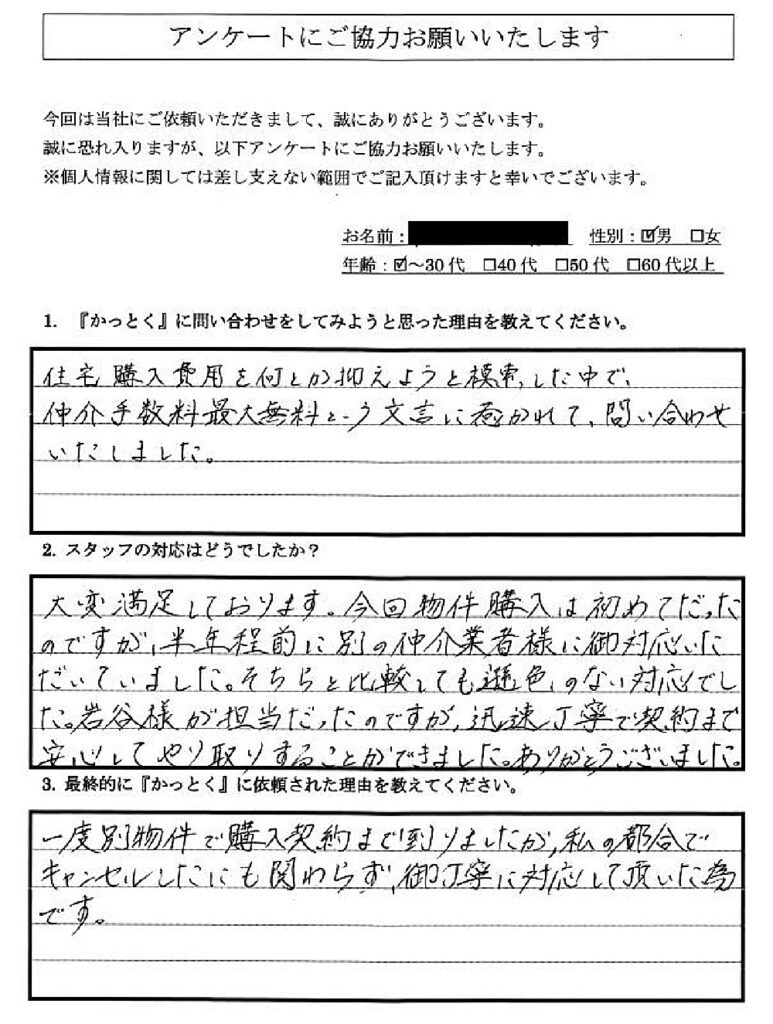 アンケートにご協力お願いいたします
今回は当社にご依頼いただきまして、誠にありがとうございます。
誠に恐れ入りますが、以下アンケートにご協力お願いいたします。
※個人情報に関しては差し支えない範囲でご記入頂けますと幸いでございます。
お名前： 性別：☑男 □女
年齢：☑～30代 □40代 □50代 □60代以上
1. 『かっとく』に問い合わせをしてみようと思った理由を教えてください。
住宅購入費用を何とか抑えようと模索した中で、
仲介手数料最大無料という文言に惹かれて、問い合わせ
いたしました。
2. スタッフの対応はどうでしたか？
大変満足しております。今回物件購入は初めてだった
のですが、半年程前に別の仲介業者様に御対応いた
だいていました。そちらと比較しても遜色のない対応でし
た。岩谷様が担当だったのですが、迅速丁寧で契約まで
安心してやり取りすることができました。ありがとうございました。
3. 最終的に『かっとく』に依頼された理由を教えてください。
一度別物件で購入契約まで到りましたが、私の都合で
キャンセルしたにも関わらず、御丁寧に対応して頂いた為
です。